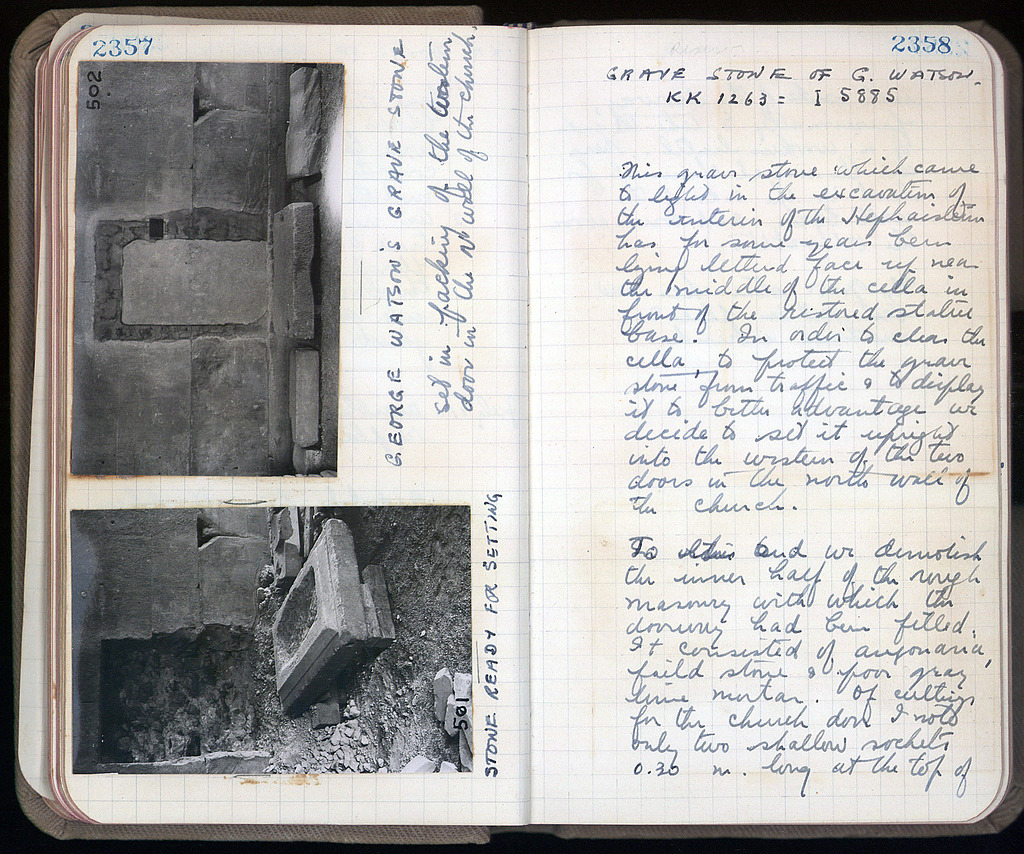 2357
502
GEORGE WATSON'S GRAVE STONE
set in packing of the western
door in the N. wall of the church.
501
STONE READY FOR SETTING
2358
GRAVE STONE OF G. WATSON.
KK 1263 = I 5885
This grave stone which came
to light in the excavation of
the interior of the Hephaisteion
has for some years been
lying lettered face up near
the middle of the cella in
front of the restored statue
base. In order to clear the
cella, to protect the grave
stone from traffic & to display
it to better advantage we
decide to set it upright
into the western of the two
doors in the north wall of
the church.
To this end we demolish
the inner half of the rough
masonry with which the
doorway had been filled.
It consisted of
field stone & poor gray
lime mortar. Of cuttings
for the church door I note
only two shallow sockets
0.30 m. long at the top of